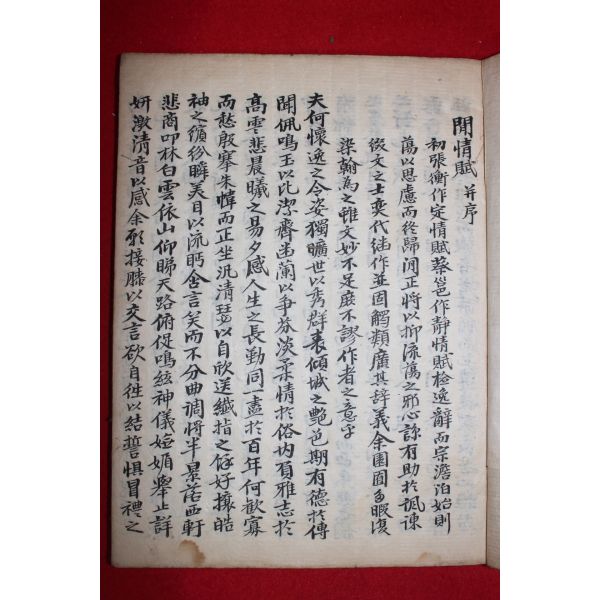 閒情賦 并序
初張衡作定情賦蔡邕作静情賦檢逸辭而宗澹泊始則
蕩以思慮而終歸閒正將以抑流蕩之邪心諒有助於諷諫
綴文之士奕代継作並固觸類廣其辞義余園閭多暇復
染翰為之雖文妙不足庶不謬作者之意乎
夫何懷逸之令姿獨曠世以秀群表傾城之艶色期有德於傳
聞佩鳴玉以比潔齊幽蘭以争芬淡柔情於俗内負雅志於
髙雲悲晨曦之易夕感人生之長勤同一盡於百年何歡寡
而愁殷褰朱幃而正坐汎清瑟以自欣送纎指之餘好攘皓
袖之繽紛瞬美目以流眄含言笑而不分曲调将半景落西軒
悲商叩林白雲依山仰睇天路俯促鳴絃神儀娬媚舉止詳
妍激清音以感余願接膝以交言欲自往以結誓懼冒禮之